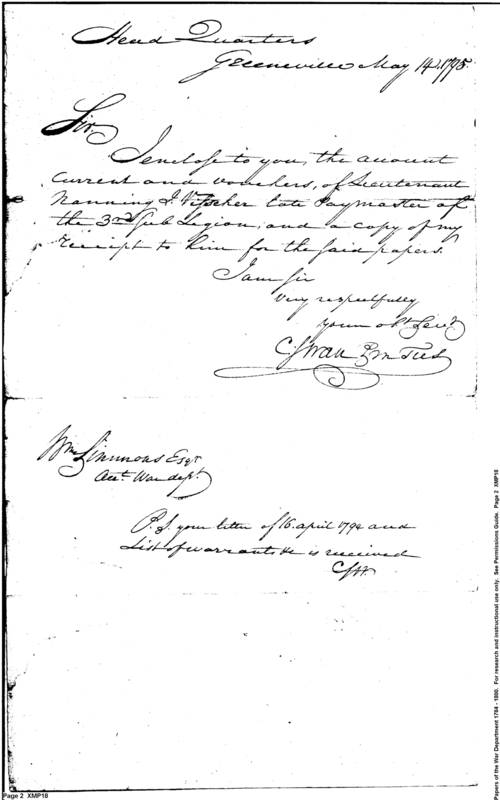 Head Quarters
Greeneville May 14. 1795.
Sir,
I enclose to you, the account
current and vouchers, of Lieutenant
Nanning J. Visscher late Paymaster of
the 3rd Sub Legion; and a copy of my
receipt to him for the said papers.
I am Sir
very respectfully
your obt Servt
C. Swan P M Tres
Wm Simmons Esqr.
Acct. War dept.
P.S. your letter of 16. april 1794 and
List of warrants &c is received
CSW.
Page 2 XMP18
Papers of the War Department 1784 - 1800. For research and instructional use only. See Permissions Guide. Page 2 XMP18